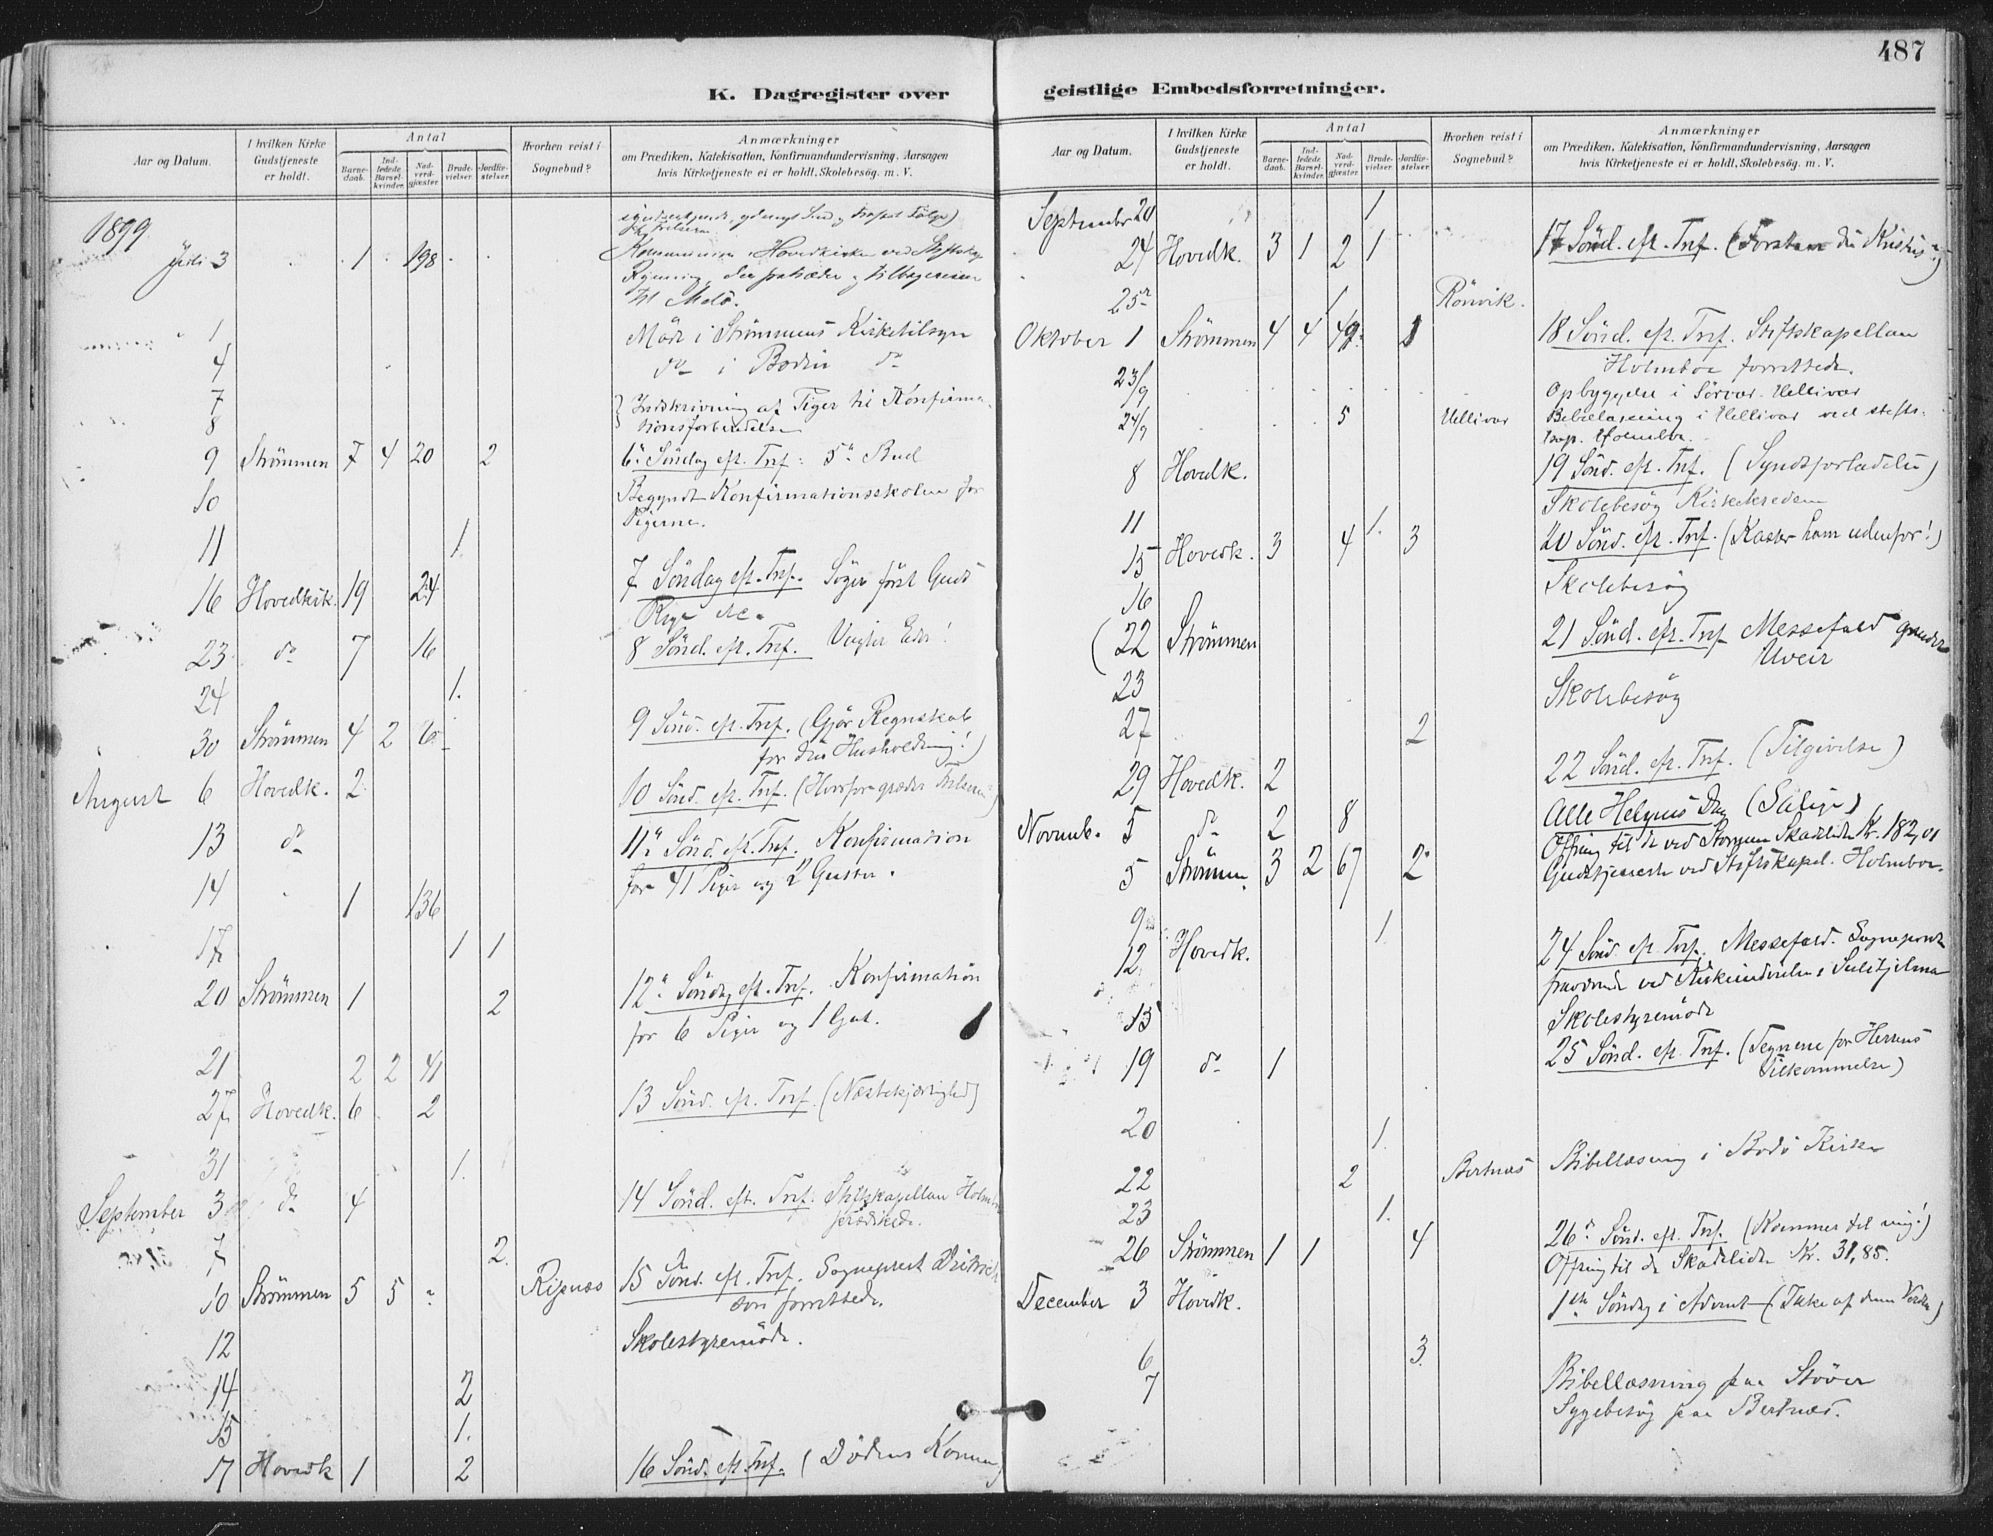 487
K. Dagregister over geistlige Embedsforretninger.
Aar og Datum.
I hvilken Kirke Gudstjeneste er holdt.
Antal
Barnedaab.
Indledede Barselkvinder.
Nadverdgjæster.
Brudevielser.
Jordfæstelser.
Hvorhen reist i Sognebud?
Anmærkninger
om Prædiken, Katekisation, Konfirmandundervisning, Aarsagen
hvis Kirketjeneste ei er holdt, Skolebesøg. m. V.
1899
Juli 3 1 198 Kommunion i Hovedkirken ved
til Melö.
1 Möde i Strömmens Kirketilsyn
4 do i Bodin do
7
8 Indskrivning af Piger til Konfirma-
tionsforberedelse
9 Strömmen 7 4 20 2 6te Söndag eft. Tref: 5te Bud
10 Begyndt Konfirmationsskolen for
Pigerne.
11 1.
16 Hovedkik. 19 24 7 Söndag eft. Tref. Söger först Guds
Rige etc.
23 do 7 16 8 Sönd. eft. Tref. Vogter Eder!
24 1.
30 Strömmen 4 2 6 9 Sönd. eft. Tref. (Gjör Regnskab
for din Husholdning!)
August 6 Hovedk. 2 10 Sönd. eft. Tref. (Hvorfor græder Frelseren)
13 do 11te Sönd. eft. Tref. Konfirmation
for 41 Piger og 2 Gutter.
14 1 136
17 1 1
20 Strömmen 1 2 12te Söndag eft. Tref. Konfirmation
for 6 Piger og 1 Gut.
21 2 2 41
27 Hovedk. 6 2 13 Sönd. eft. Tref. (Næstekjærlighed)
31 1.
September 3 do 4 14 Sönd. eft. Tref: Stiftskapellan Holmboe
prædikede.
7 2.
10 Strömmen 5 5 Ripnæs 15 Sönd. eft. Tref. Sogneprest
son forrettede.
12 Skolestyremöde.
14 2
15 1.
17 Hovedk 1 2 16 Sönd. eft. Tref. (Dödens
Aar og Datum.
I hvilken Kirke Gudstjeneste er holdt.
Antal
Barnedaab.
Indledede Barselkvinder.
Nadverdgjæster.
Brudevielser.
Jordfæstelser.
Hvorhen reist i Sognebud?
Anmærkninger
om Prædiken, Katekisation, Konfirmandundervisning, Aarsagen
hvis Kirketjeneste ei er holdt, Skolebesøg. m. V.
September 20 1
24 Hovedk. 3 1 2 1 17 Sönd. eft. Tref.
25 1 Rönvik.
Oktober 1 Strömmen 4 4 49 1 18 Sönd. eft. Tref. Stiftskapellan
Holmboe forrettede.
23/9 Opbyggelse i Sörvær Hellivær
24/9 5 Hellivær Bibellæsning i Hellivær ved stifts-
kap. Holmboe.
8 Hovedk. 19 Sönd. eft. Tref. (Syndsforladelse)
11 1. Skolebesög Kirkekredsen
15 Hovedk. 3 4 3 20 Sönd. eft. Tref. (Kaster ham udenfor!)
16 Skolebesög
(22 Strömmen 21 Sönd. eft. Tref Messefald grundet
Uveir
23 Skolebesög
27 2
29 Hovedk. 2 22 Sönd. eft. Tref. (Tilgivelse)
Novemb. 5 do 2 8 Alle Helgens Dag (Salige)
Offring til de ved Stormen Skadelidte Kr. 182,01
5 Strömm. 3 2 67 2 Gudstjeneste ved Stiftskapel. Holmboe.
9 1.
12 Hovedk. 24 Sönd. eft. Tref. Messefald. Sogneprest
fraværende ved Kirkeindvielse i Sulitjelma
13 Skolestyremöde
19 do 1 25 Sönd. eft. Tref. (Tegnene for Herrens
Tilkommelse)
20 1.
22 2 Bertnæs Bibellæsning i Bodö Kirke
23 1.
26 Strömmen 1 1 4 26te Sönd. eft. Tref. (Kommer til mig!)
Offring til de Skadelidte Kr. 31,85.
December 3 Hovedk. 1ste Söndag i Advent (Ikke af denne Verden)
6 3.
7 Bibellæsning paa Stöver
Sygebesög paa Bertnæs.